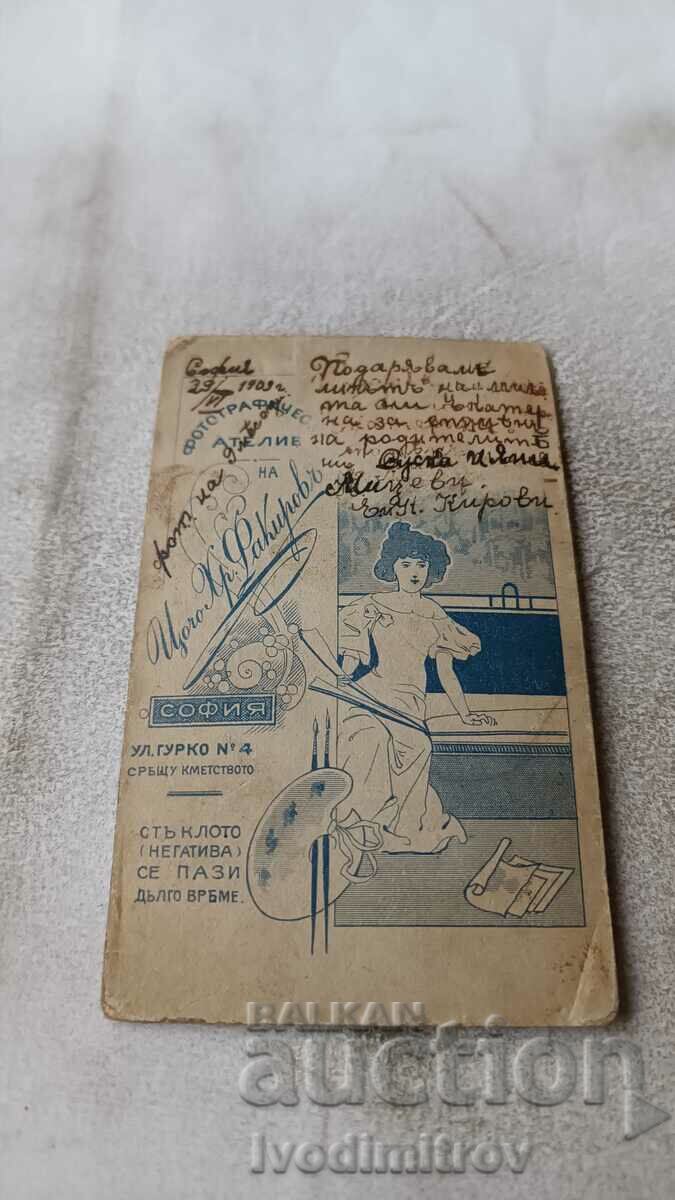 София
29/VI 1909 г.
Подаряваме
ликътъ на мили
та ни Екатер
на за
на родителитѣ
ни Илия
Мицеви
Н. Кирови.
фот. на
ФОТОГРАФИЧЕС
АТЕЛИЕ
НА
Цочо Хр. Факировъ
СОФИЯ
УЛ. ГУРКО № 4
СРѢЩУ КМЕТСТВОТО
СТЪКЛОТО
(НЕГАТИВА)
СЕ ПАЗИ
ДЪЛГО ВРѢМЕ.
BALKAN
auction
Ivodimitrov